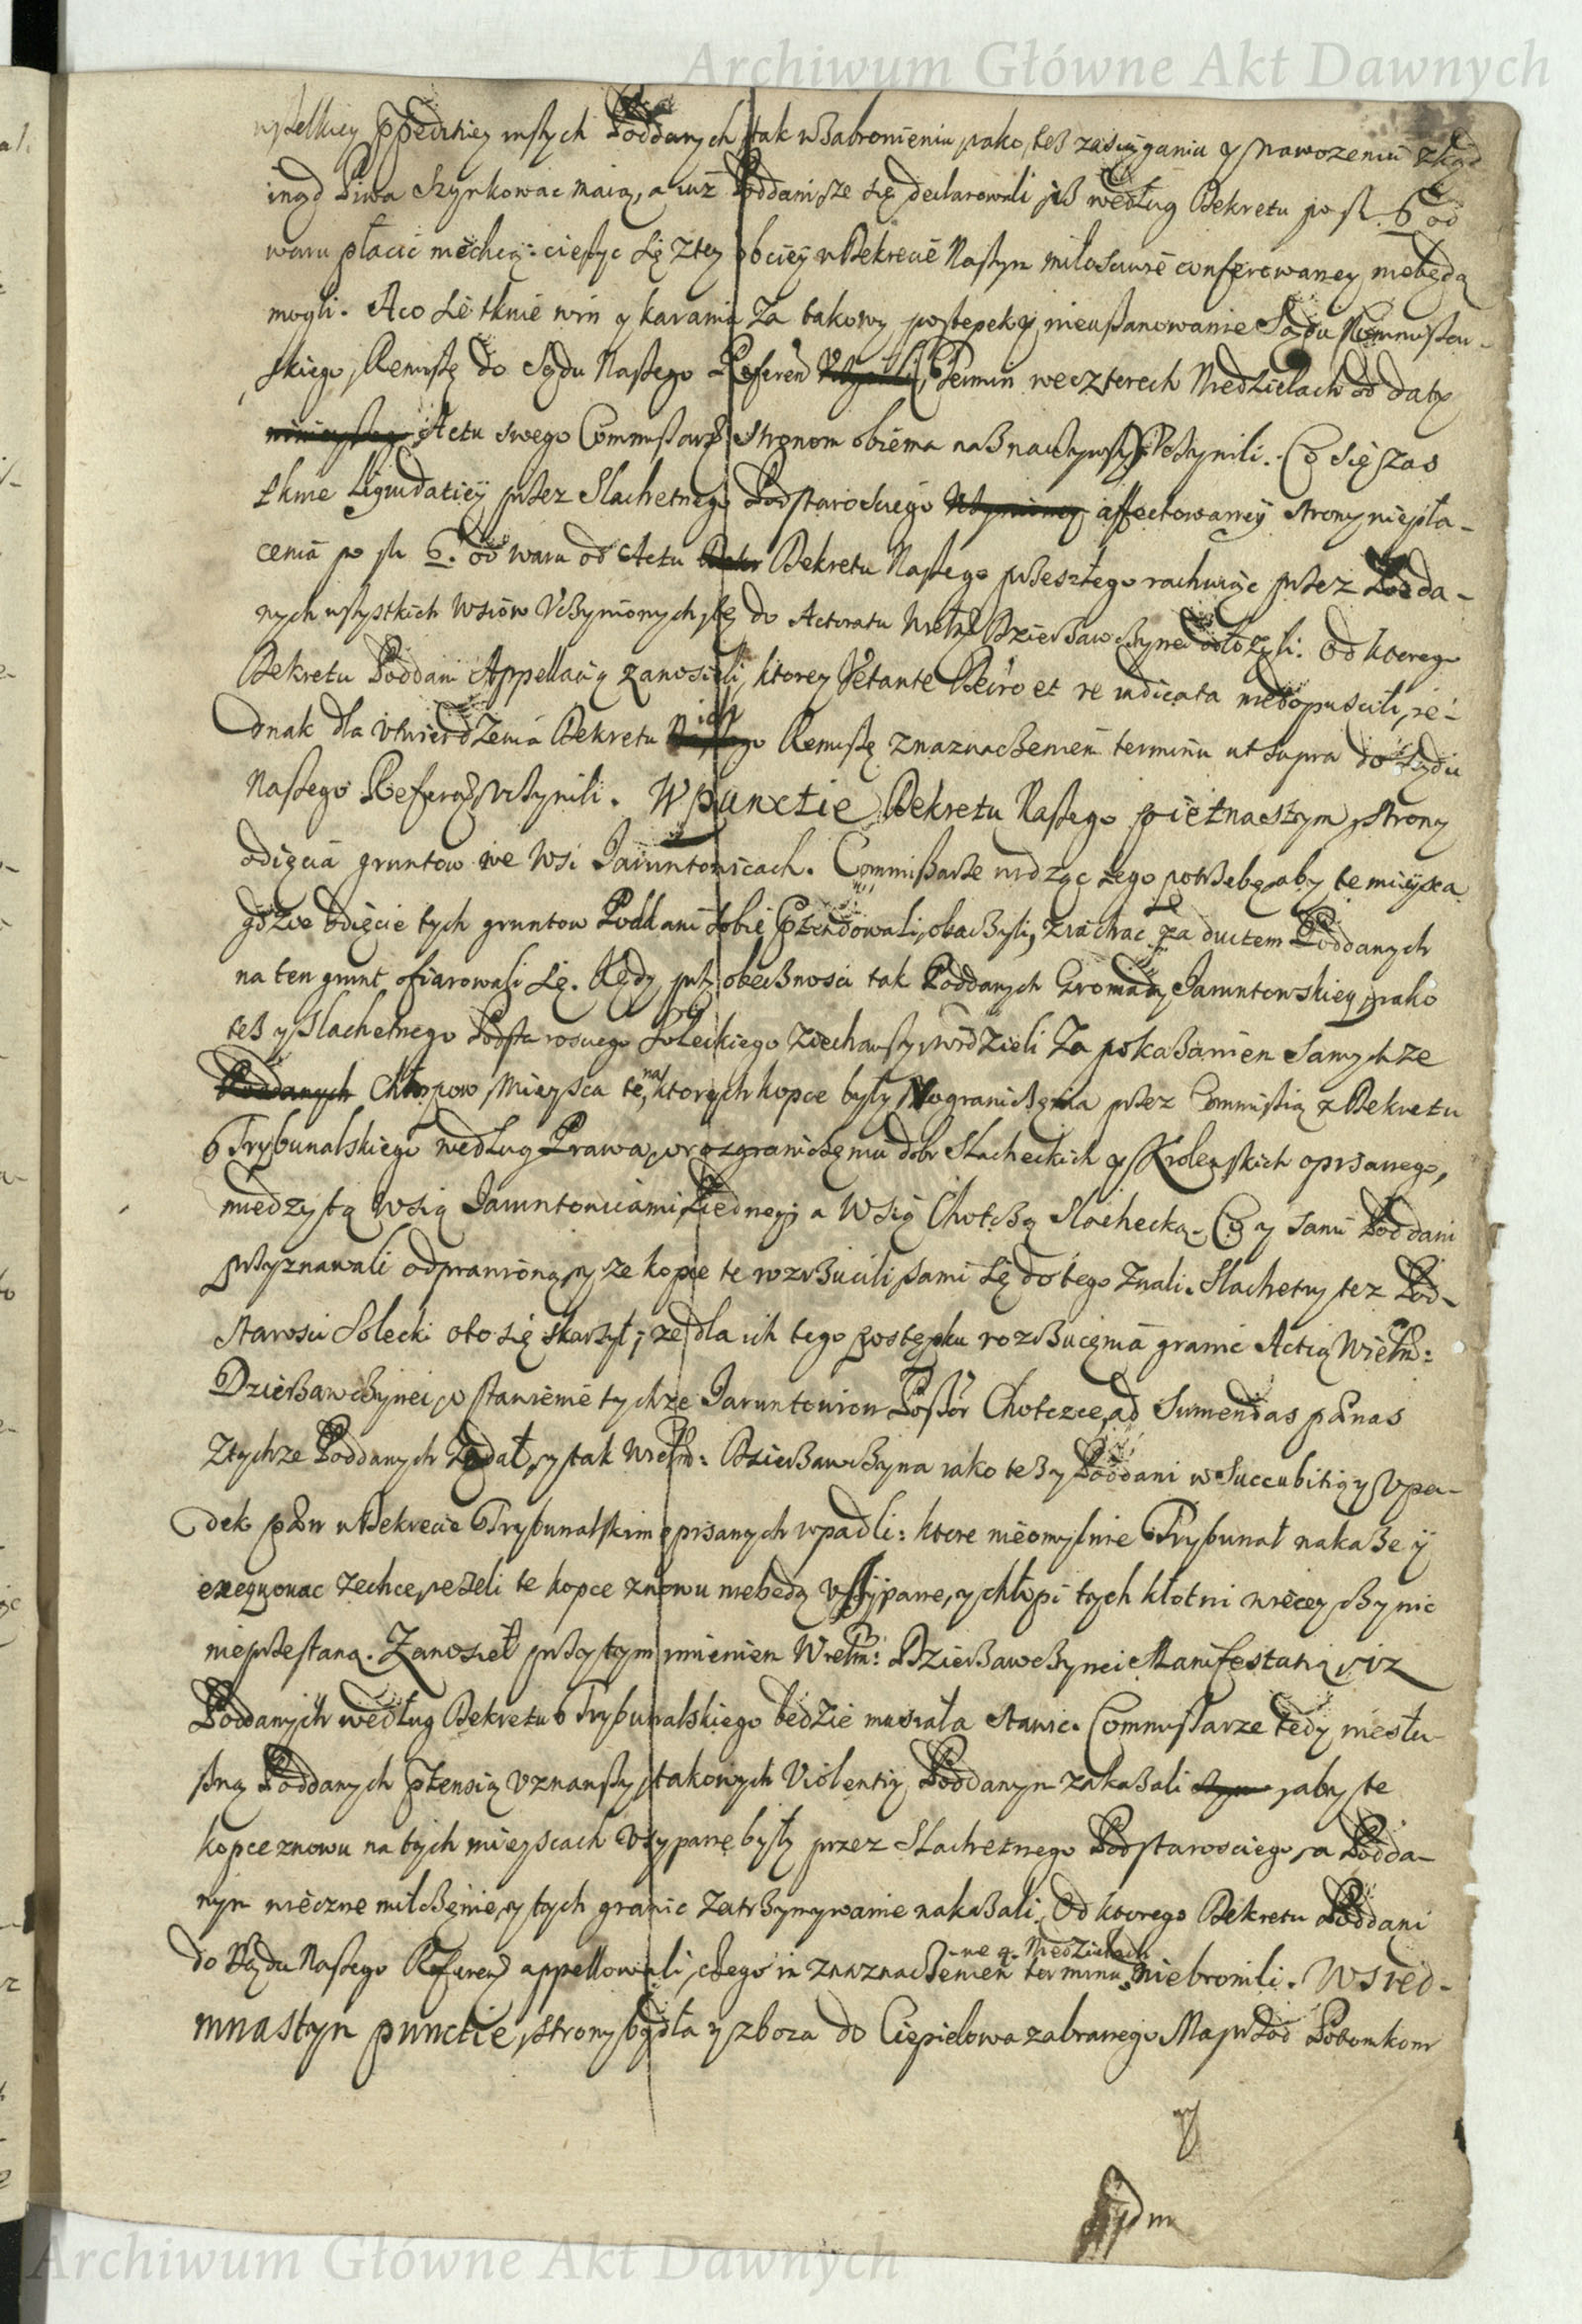 Archiwum Główne Akt Dawnych
wszelkiey inszych Poddanych, tak w zabronieniu jako tesz zaciągania y nawozeniu zkąd
inąd Piwa Szynkowac maią, a iuz Poddani ze się declarowali isz według Dekretu po zł. 6 od
waru płacic niechcą: ciesząc się z tey w Dekrecie Naszym miłosciwie conferowaney niebędą
mogli. A co się tknie win y karania za takowy postepek y nieuszanowanie Sądu Commissar-
skiego, Remissę do Sądu Naszego Referen Termin we czterech Niedzielach od daty
Actu swego Commissarze Stronom obiema naznaczywszy Uczynili. Co się zas
tknie Liquidatiey przez Slachetnego Podstarosciego affectowaney strony niepła-
cenia po zł 6. od waru od Actu Dekretu Naszego przeszłego rachuiąc przez Podda-
nych wszystkich Wsiow Uczynionych, tę do Actoratu Wielm Dzierzawczynei odłozyli. Od ktorego
Dekretu Poddani Appellatią zanosieli, ktorey Vetante Decreto et re iudicata niedopuscili, ie-
dnak dla utwierdzenia Dekretu Remissę z naznaczeniem terminu ut supra do Sądu
Naszego Referen Uczynili. W punctie Dekretu Naszego pietnastym, strony
odięcia gruntow we Wsi Jaruntowicach. Commissarze widząc tego potrzebę aby te mieysca
gdzie odięcie tych gruntow Poddani sobie Ptendowali, obaczyli, ziachac za ductem Poddanych
na ten grunt ofiarowali się. Kędy przy obecznosci tak Poddanych Gromady Jaruntowskiey, iako
tesz y Slachetnego Podstarosciego Soleckiego ziechawszy, widzieli za pokazaniem samychze
Chłopow Mieysca te, na ktorych kopce były ograniczenia przez Commissią z Dekretu
Trybunalskiego według Prawa, o rozgraniczeniu dobr Slacheckich y Krolewskich opisanego,
miedzy tą wsią Jaruntowicami z iedney, a Wsią Chotczą Slachecką. Co y sami Poddani
przyznawali odprawioną, y ze kopce te rozrzucili sami się do tego znali. Slachetny tez Pod-
starosci Solecki oto się skarzył, ze dla ich tego postępku rozrzucenia granic Actią Wielm:
Dzierzawczynei, o stawienie tychze Jaruntowicow Possor Chotczce, ad sumendas pœnas
z tychze Poddanych zadał, y tak Wielm: Dzierzawczyna iako tesz y Poddani w Succubitią y Upa-
dek pœn w Dekrecie Trybunalskim opisanych wpadli: ktore nieomylnie Trybunał nakaze y
exequowac zechce, iezeli te kopce znowu niebedą usypane, y chłopi tych kłotni więcey czynic
nieprzestaną. Zanosieł przytym imieniem Wielm: Dzierzawczynei Manifestatią, iz
Poddanych według Dekretu Trybunalskiego będzie musiała stawic. Commissarze tedy niesłu-
szną Poddanych Ptensią uznawszy, takowych Violentiy Poddanym zakazali, aby te
kopce znowu na tych mieyscach usypane były przez Slachetnego Podstarosciego, a Podda-
nym wieczne milczenie, y tych granic zatrzymywanie nakazali. Od ktorego Dekretu Poddani
do Sądu Naszego Referen appellowali, czego im z naznaczeniem terminu we 4. Niedzielach niebronili. W sied-
mnastym punctie, strony bydła y zboza do Ciepielowa zabranego Maprzod Potomkom
Archiwum Główne Akt Dawnych